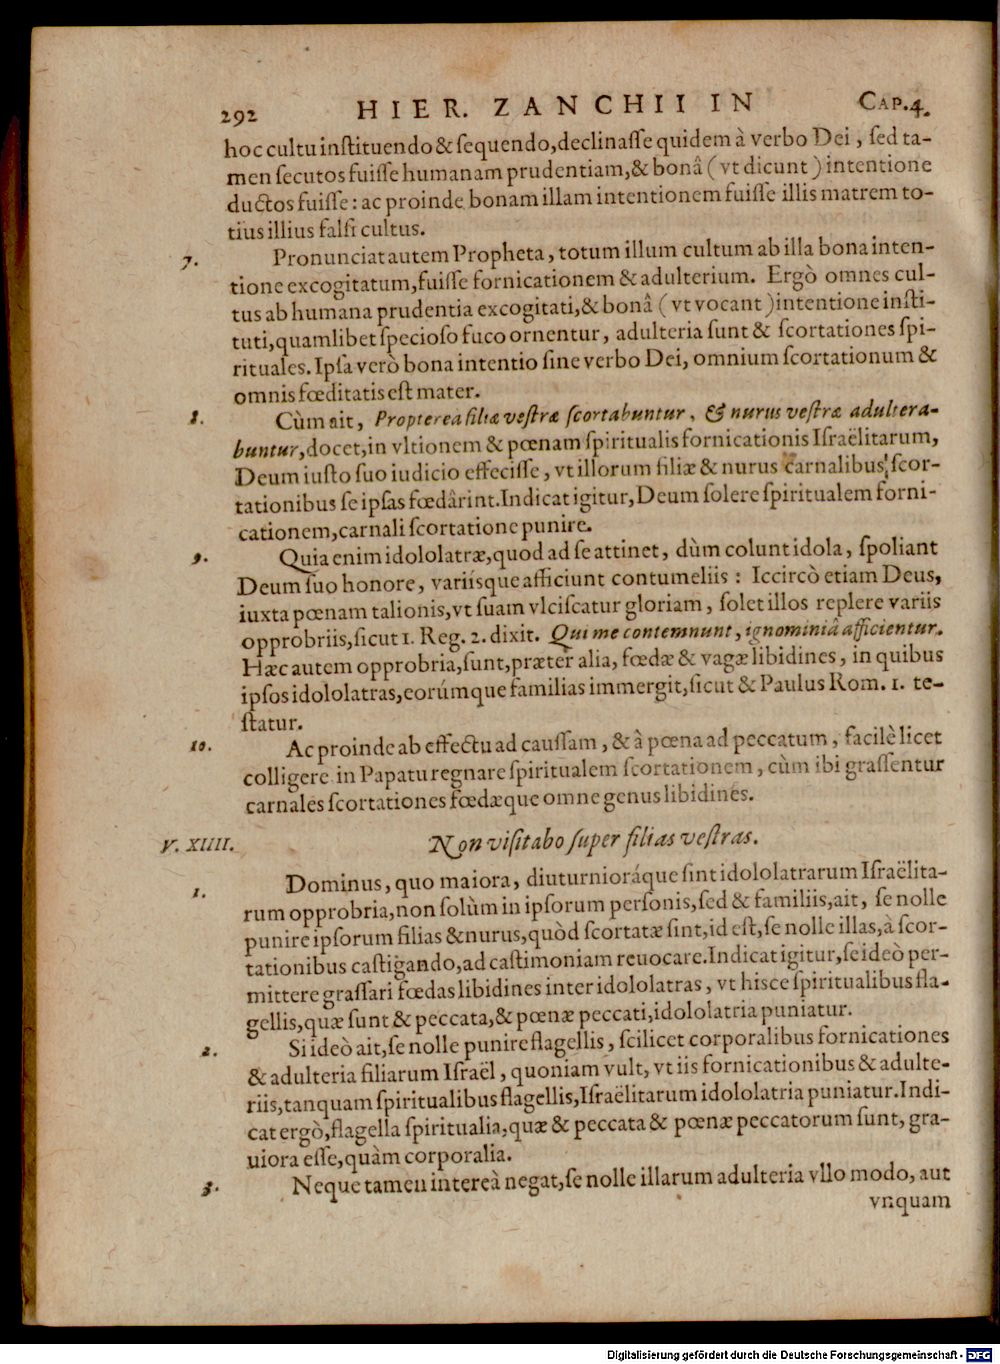 292 HIER. ZANCHII IN CAP.4.
hoc cultu inſtituendo & ſequendo, declinaſſe quidem à verbo Dei, ſed ta-
men ſecutos fuiſſe humanam prudentiam, & bonâ (vt dicunt) intentione
ductos fuiſſe: ac proinde bonam illam intentionem fuiſſe illis matrem to-
tius illius falſi cultus.
7. Pronunciat autem Propheta, totum illum cultum ab illa bona inten-
tione excogitatum, fuiſſe fornicationem & adulterium. Ergò omnes cul-
tus ab humana prudentia excogitati, & bonâ (vt vocant) intentione inſti-
tuti, quamlibet ſpecioſo fuco ornentur, adulteria ſunt & ſcortationes ſpi-
rituales. Ipſa verò bona intentio ſine verbo Dei, omnium ſcortationum &
omnis fœditatis eſt mater.
8. Cùm ait, Propterea filiæ veſtræ ſcortabuntur, & nurus veſtræ adultera-
buntur, docet, in vltionem & pœnam ſpiritualis fornicationis Iſraëlitarum,
Deum iuſto ſuo iudicio effeciſſe, vt illorum filiæ & nurus carnalibus ſcor-
tationibus ſe ipſas fœdârint. Indicat igitur, Deum ſolere ſpiritualem forni-
cationem, carnali ſcortatione punire.
9. Quia enim idololatræ, quod ad ſe attinet, dùm colunt idola, ſpoliant
Deum ſuo honore, variíſque afficiunt contumeliis: Iccircò etiam Deus,
iuxta pœnam talionis, vt ſuam vlciſcatur gloriam, ſolet illos replere variis
opprobriis, ſicut 1. Reg. 2. dixit. Qui me contemnunt, ignominiâ afficientur.
Hæc autem opprobria, ſunt, præter alia, fœdæ & vagæ libidines, in quibus
ipſos idololatras, eorúmque familias immergit, ſicut & Paulus Rom. 1. te-
ſtatur.
10. Ac proinde ab effectu ad cauſſam, & à pœna ad peccatum, facilè licet
colligere in Papatu regnare ſpiritualem ſcortationem, cùm ibi graſſentur
carnales ſcortationes fœdæque omne genus libidines.
V. XIIII. Non viſitabo ſuper filias veſtras.
1. Dominus, quo maiora, diuturnioráque ſint idololatrarum Iſraëlita-
rum opprobria, non ſolùm in ipſorum perſonis, ſed & familiis, ait, ſe nolle
punire ipſorum filias & nurus, quòd ſcortatæ ſint, id eſt, ſe nolle illas, à ſcor-
tationibus caſtigando, ad caſtimoniam reuocare. Indicat igitur, ſe ideò per-
mittere graſſari fœdas libidines inter idololatras, vt hisce ſpiritualibus fla-
gellis, quæ ſunt & peccata, & pœnæ peccati, idololatria puniatur.
2. Si ideò ait, ſe nolle punire flagellis, ſcilicet corporalibus fornicationes
& adulteria filiarum Iſraël, quoniam vult, vt iis fornicationibus & adulte-
riis, tanquam ſpiritualibus flagellis, Iſraëlitarum idololatria puniatur. Indi-
cat ergò, flagella ſpiritualia, quæ & peccata & pœnæ peccatorum ſunt, gra-
uiora eſſe, quàm corporalia.
3. Neque tamen intereà negat, ſe nolle illarum adulteria vllo modo, aut
vnquam
Digitalisierung gefördert durch die Deutsche Forschungsgemeinschaft - DFG